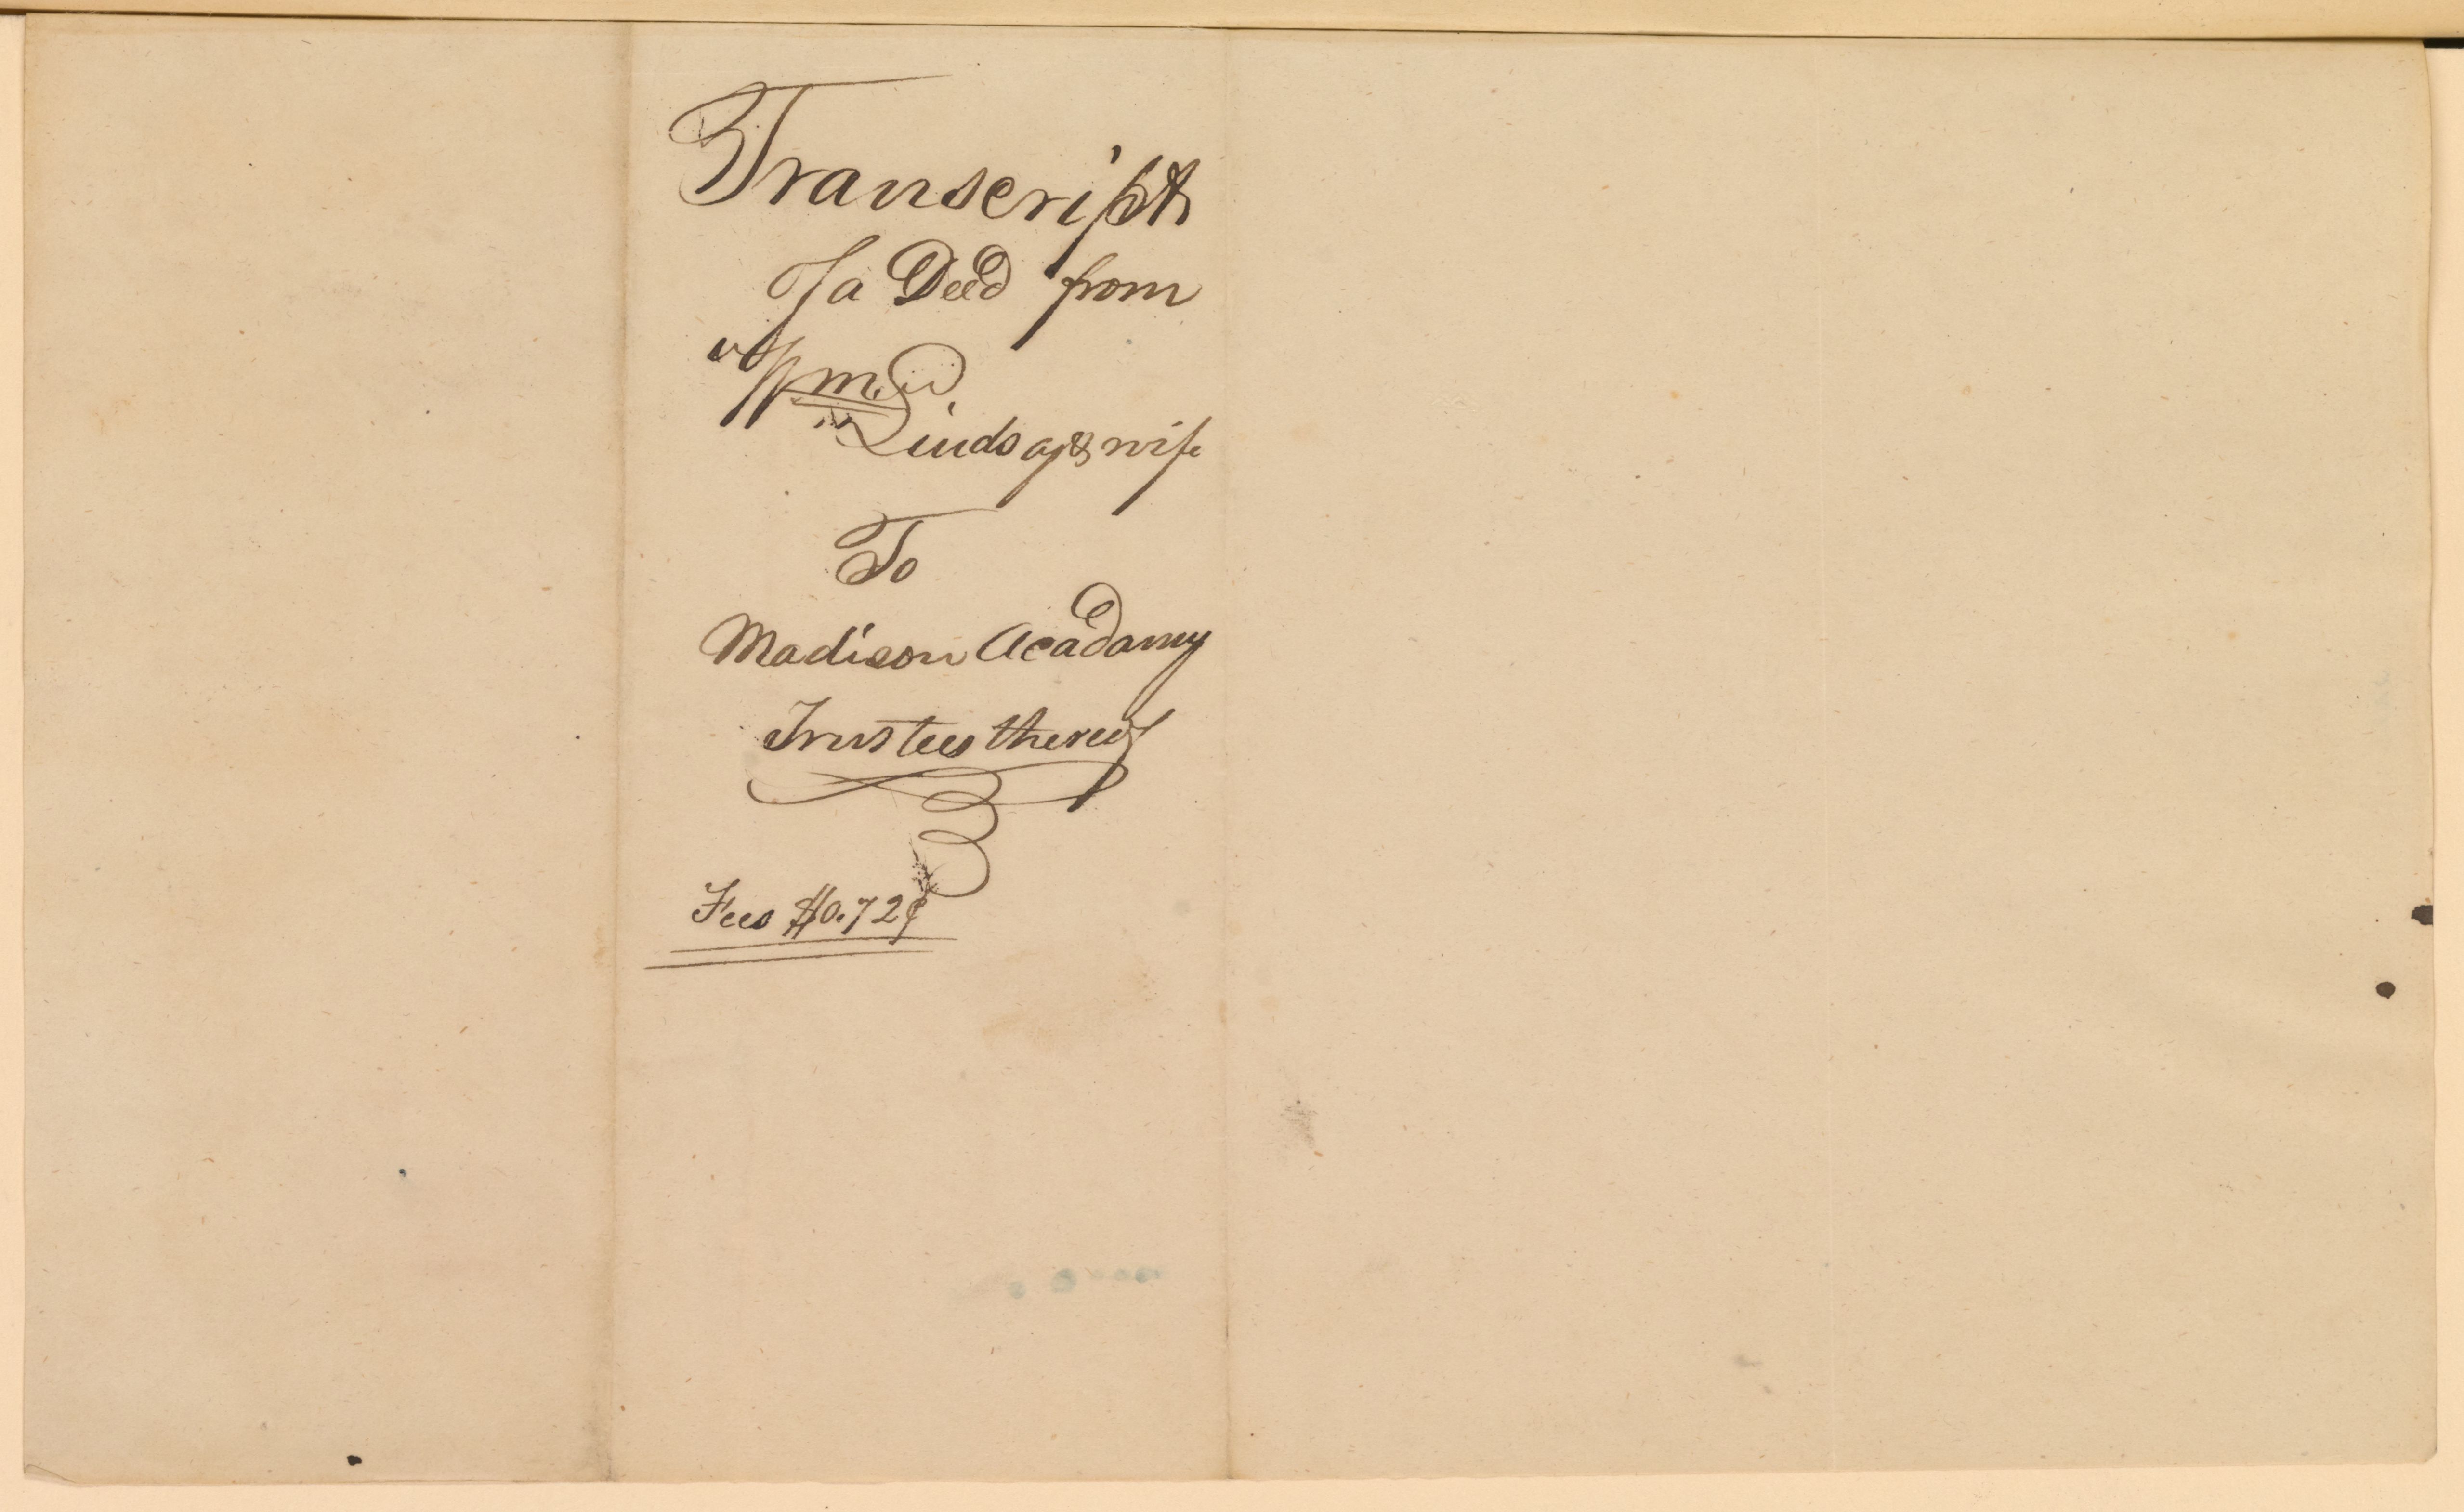 Transcript
Of a Deed from
Wm
Lindsay & wife
To
Madison Acadamy
Trustees thereof
Fees $0.72¢